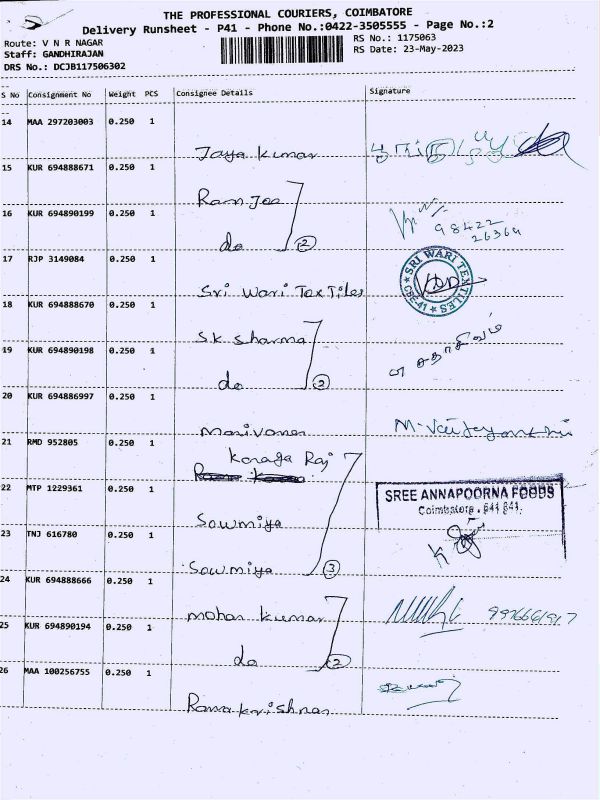 THE PROFESSIONAL COURIERS, COIMBATORE
Delivery Runsheet - P41 - Phone No.:0422-3505555 - Page No.:2
Route: V N R NAGAR
Staff: GANDHIRAJAN
DRS No.: DCJB117506302
RS No.: 1175063
RS Date: 23-May-2023
S No Consignment No Weight PCS Consignee Details Signature
14 MAA 297203003 0.250 1
Jaya Kumar
15 KUR 694888671 0.250 1
Ram Jee
16 KUR 694890199 0.250 1
do 2
98422
26364
17 RJP 3149084 0.250 1
Sri Wari TexTiles
SRI WARI TEXTILES
CBE-41
18 KUR 694888670 0.250 1
SK Sharma
19 KUR 694890198 0.250 1
do 2
சதாசிவம்
20 KUR 694886997 0.250 1
manivanan
21 RMD 952805 0.250 1
Kanaga Raj
22 MTP 1229361 0.250 1
Sowmiya
SREE ANNAPOORNA FOODS
Coimbatore - 641 041.
23 TNJ 616780 0.250 1
Sowmiya 3
24 KUR 694888666 0.250 1
mohan kumar
25 KUR 694890194 0.250 1
do 2
26 MAA 100256755 0.250 1
Ramakrishnan